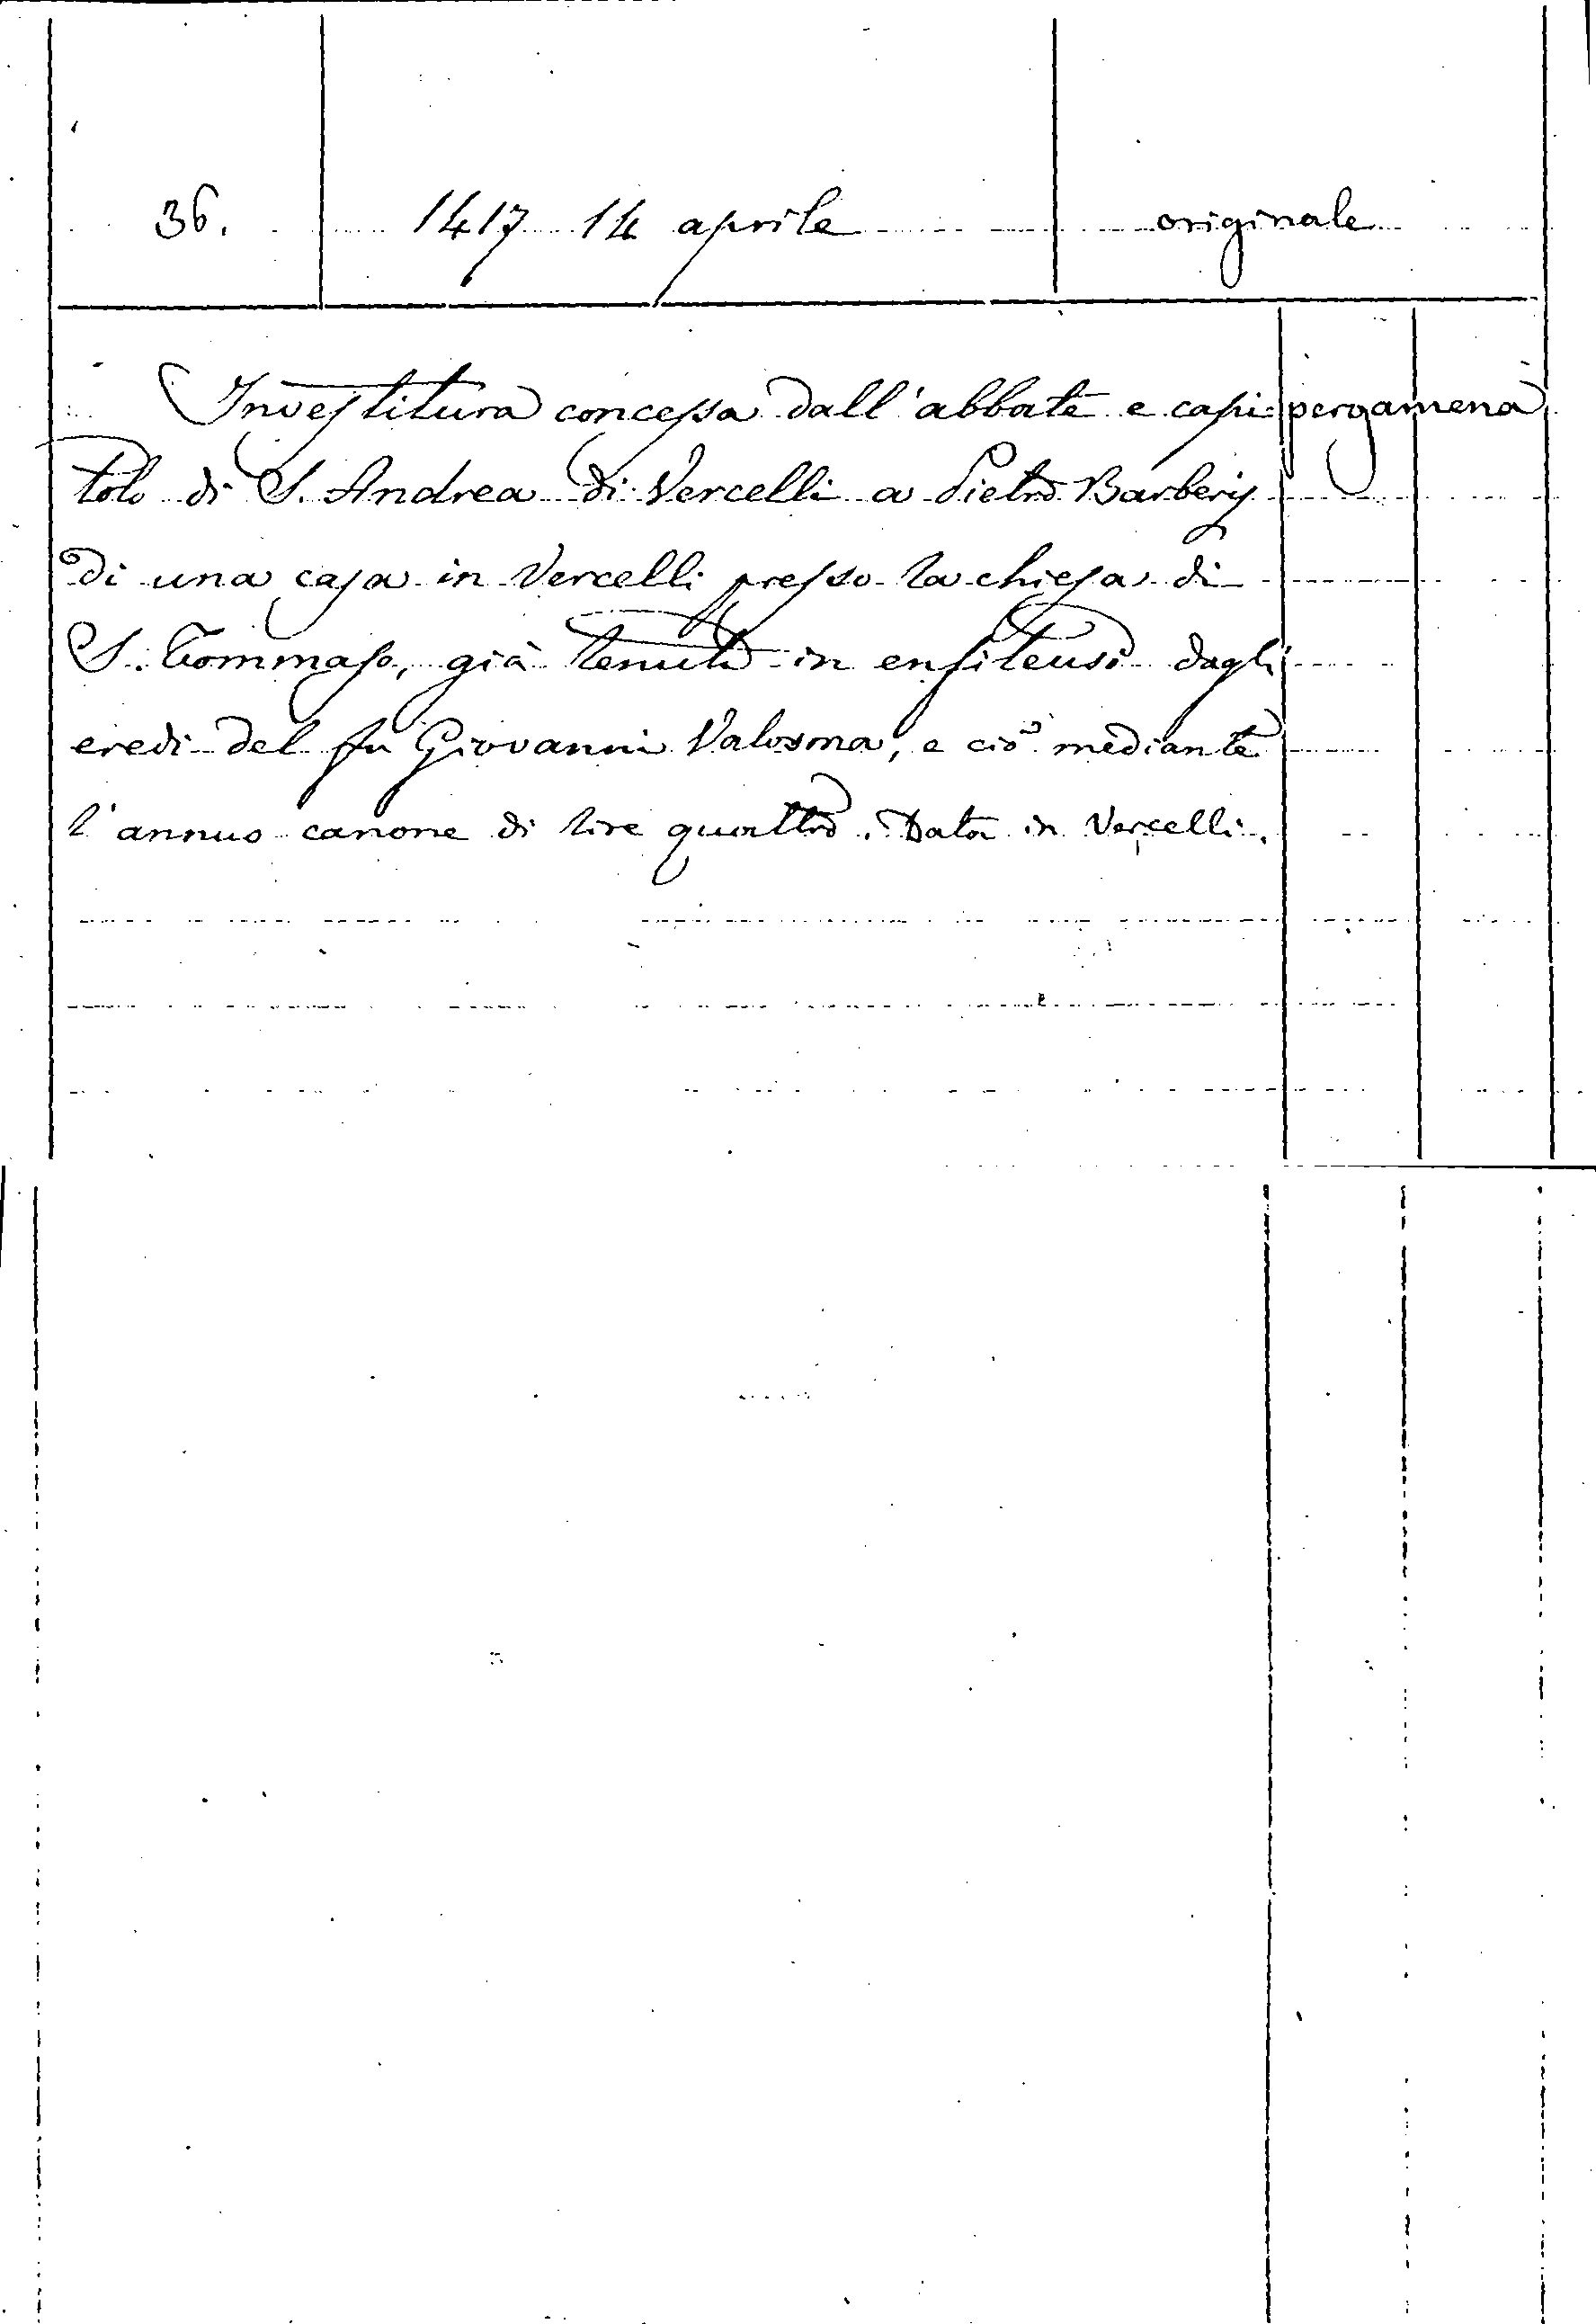 36. 1417 14 aprile originale
Investitura concessa dall'abbate e capi- pergamena
tolo di S. Andrea di Vercelli a Pietro Barberis
di una casa in Vercelli presso la chiesa di
S. Tommaso, già tenuta in enfiteusi dagli
eredi del fu Giovanni Valosma, e ciò mediante
l'annuo canone di lire quattro. Data in Vercelli.